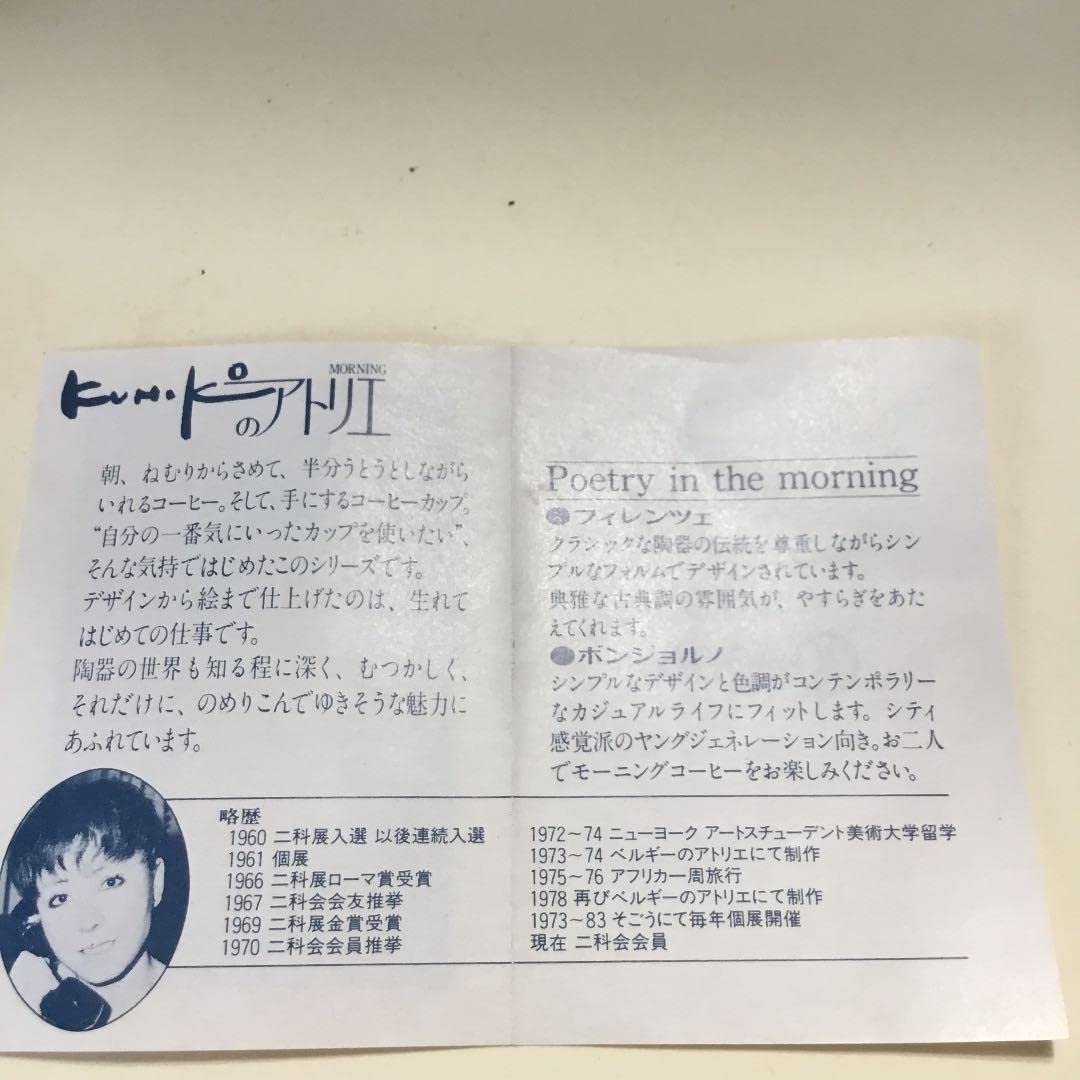 KUNIKO
MORNING
のアトリエ
朝、ねむりからさめて、半分うとうとしながら
いれるコーヒー。そして、手にするコーヒーカップ。
“自分の一番気にいったカップを使いたい”、
そんな気持ではじめたこのシリーズです。
デザインから絵まで仕上げたのは、生れて
はじめての仕事です。
陶器の世界も知る程に深く、むつかしく、
それだけに、のめりこんでゆきそうな魅力に
あふれています。
Poetry in the morning
フィレンツェ
クラシックな陶器の伝統を尊重しながらシン
プルなフォルムでデザインされています。
典雅な古典調の雰囲気が、やすらぎをあた
えてくれます。
ボンジョルノ
シンプルなデザインと色調がコンテンポラリー
なカジュアルライフにフィットします。シティ
感覚派のヤングジェネレーション向き。お二人
でモーニングコーヒーをお楽しみください。
略歴
1960 二科展入選 以後連続入選
1961 個展
1966 二科展ローマ賞受賞
1967 二科会会友推挙
1969 二科展金賞受賞
1970 二科会会員推挙
1972〜74 ニューヨーク アートスチューデント美術大学留学
1973〜74 ベルギーのアトリエにて制作
1975〜76 アフリカ一周旅行
1978 再びベルギーのアトリエにて制作
1973〜83 そごうにて毎年個展開催
現在 二科会会員